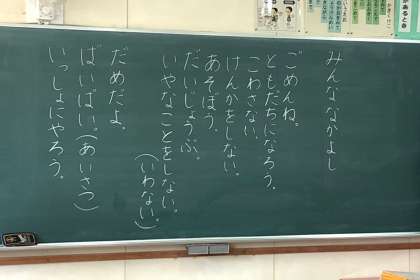 みんななかよし
ごめんね。
ともだちになろう。
こわさない。
けんかをしない。
あそぼう。
だいじょうぶ。
いやなことをしない。
(いわない。)
だめだよ。
ばいばい。(あいさつ)
いっしょにやろう。